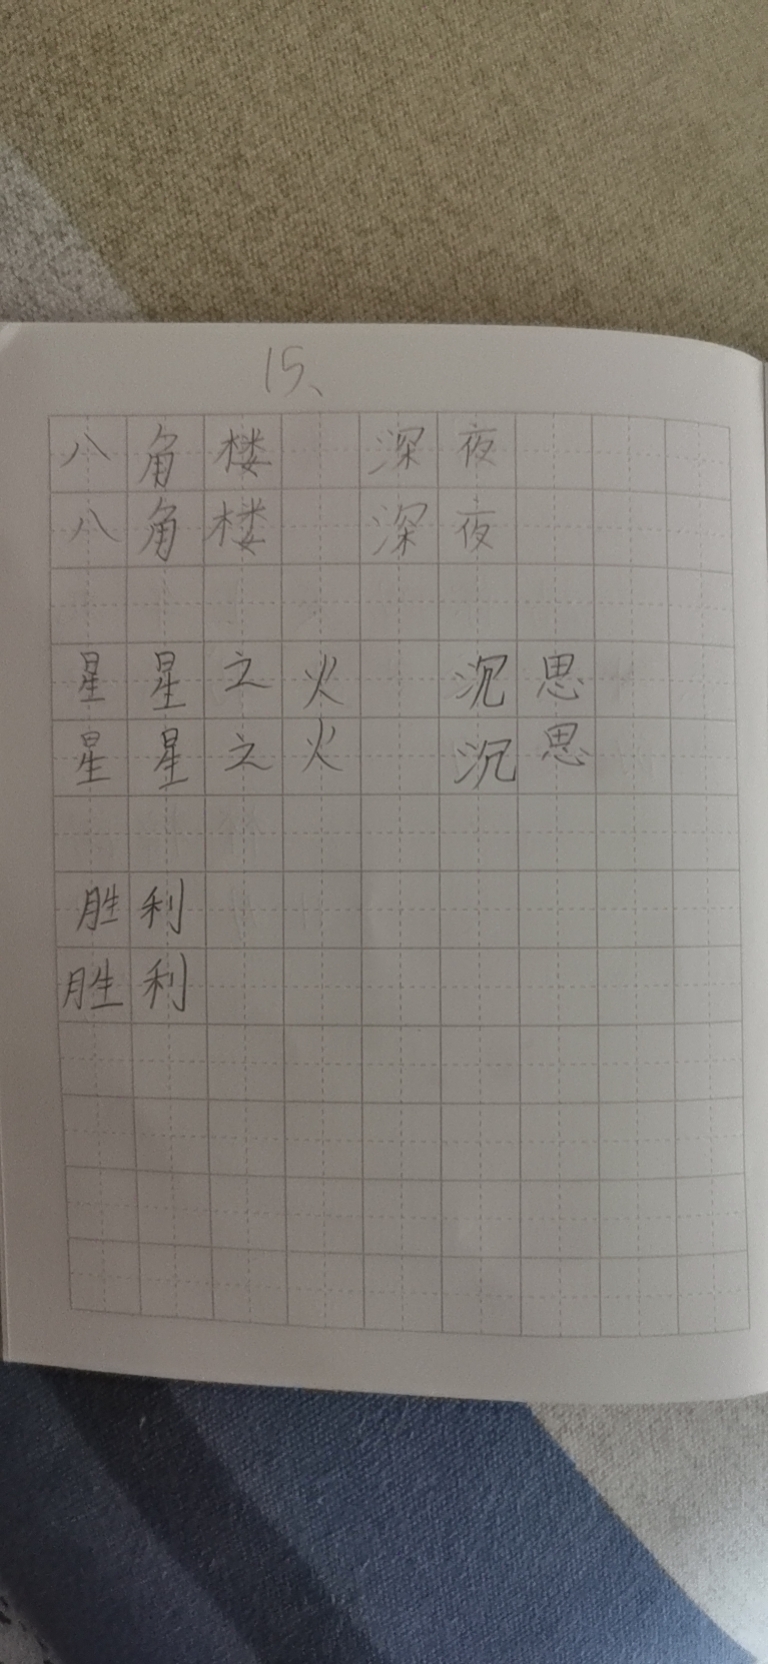 15、
八角楼 深夜
八角楼 深夜
星星之火 沉思
星星之火 沉思
胜利
胜利